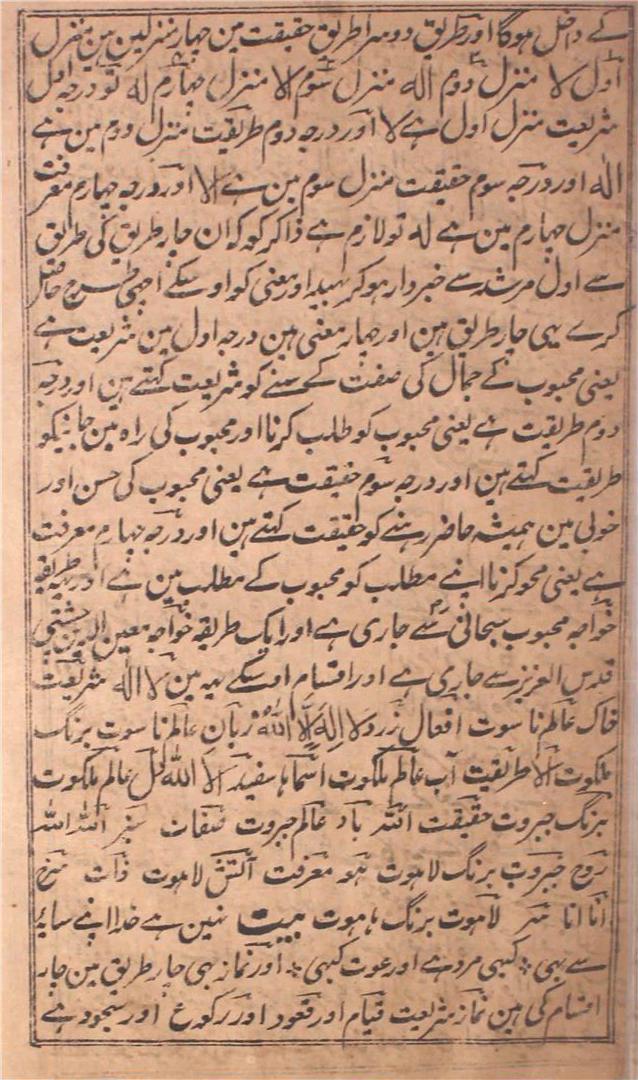 کے داخل ہوگا اور طریق دوسرا طریق حقیقت مین چہار منزلین ہین منزل
اول لا منزل دوم الہ منزل سوم الا منزل چہارم لہ تو درجہ اول
شریعت منزل اول ہے لا اور درجہ دوم طریقیت منزل دوم مین ہے
الہ اور درجہ سوم حقیقت منزل سوم مین ہے الا اور درجہ چہارم معرفت
منزل چہارم مین ہے لہ تو لازم ہے ذاکر کو کہ ان چار طریق کی طریق
سے اول مرشد سے خبردار ہوکر بہید اور معنی کو اوسکے اچہی طرح حاصل
کرے یہی چار طریق ہین اور چہار معنی ہین درجہ اول مین شریعت ہے
یعنی محبوب کے جمال کی صفت کے سننے کو شریعت کہتے ہین اور درجہ
دوم طریقیت ہے یعنی محبوب کو طلب کرنا اور محبوب کی راہ مین جانیکو
طریقیت کہتے ہین اور درجہ سوم حقیقت ہے یعنی محبوب کی حسن اور
خوبی مین ہمیشہ حاضر رہنے کو حقیقت کہتے ہین اور درجہ چہارم معرفت
ہے یعنی محو کرنا اپنے مطلب کو محبوب کے مطلب مین ہے اور طریقہ
خواجہ محبوب سبحانی سے جاری ہے اور ایک طریقہ خواجہ معین الدین چشتی
قدس العزیز سے جاری ہے اور اقسام اوسکے یہ ہین لا الہ شریعت
خاک عالم ناسوت افعال زرد لا اِلٰہَ اِلَّا اللّٰہُ زبان عالم ناسوت برنگ
ملکوت الا طریقیت آب عالم ملکوت اسما سفید الا اللہ دل عالم ملکوت
برنگ جبروت حقیقت اللہ باد عالم جبروت صفات سبز اللہ اللہ
روح جبروت برنگ لاہوت ہو معرفت آتش لاہوت ذات سرخ
انا انا سر لاہوت برنگ ہاہوت بیت نہین ہے خدا اپنے سایہ
سے یہی ٭ کبہی مرد ہے اور عورت کبہی ٭ اور نماز بہی چار طریق مین چار
اقسام کی ہین نماز شریعت قیام اور قعود اور رکوع اور سجود ہے